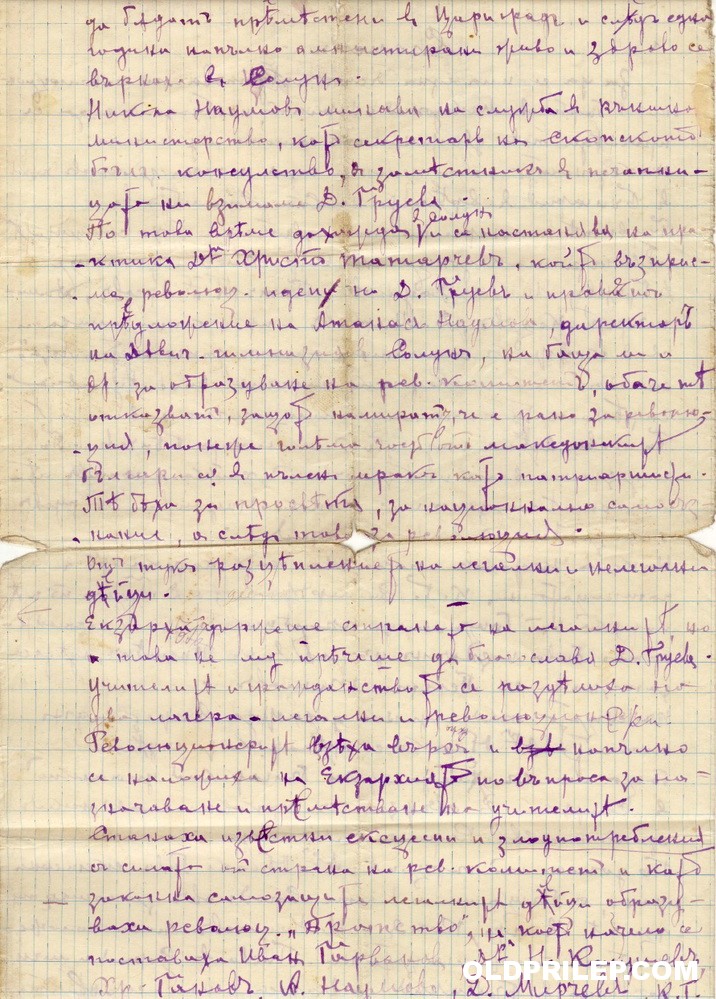 да бѫдатъ прѣмѣстени въ Цариградъ и слѣдъ една
година напълно амнистирани живо и здраво се
върнаха въ Солунъ.
Никола Наумовъ минава на служба въ външно
министерство, като секретаръ на скопското
бълг. консулство, а замѣстникъ въ печатни-
цата ни взимаме Д. Груева.
По това врѣме дохожда въ Солунъ и се настанява на пра-
ктика Д-ръ Христо Татарчевъ, който възприе-
ма револю. идеи на Д. Груевъ и правятъ
прѣдложение на Атанасъ Наумов, директоръ
на дѣвич. гимназия въ Солунъ, на баща ми и
др. за образуване на рев. комитетъ, обаче тѣ
отказватъ, защото намиратъ, че е рано за револю-
ция, понеже голѣма часть отъ македонскитѣ
българи сѫ въ пъленъ мракъ като патриаршисти.
Тѣ бѣха за просвѣта, за национално самосъз
нание, а слѣдъ това за революция.
Отъ тукъ разцѣплението на легални и нелегални
дѣйци.
Екзархията държеше страната на легалнитѣ, но
това не му прѣчеше да благославя Д. Груевъ.
Учителитѣ и гражданството се раздѣлиха на
два лагера - легални и революционери.
Революционеритѣ взѣха върхъ и напълно
се наложиха на Екзархията по въпроса за на-
значаване и прѣмѣстване на учителитѣ.
Станаха извѣстни ексцесии и злоупотрѣбления
съ силата отъ страна на рев. комитетъ и като
законна самозащита легалнитѣ дѣйци образу-
ваха револю. „Братство", на което начело се
поставиха Иванъ Гарванов, Д-ръ Н.
Хр. Гановъ, А. Наумовъ, Д. Мирчевъ, К. Г.
OLDPRILEP.COM